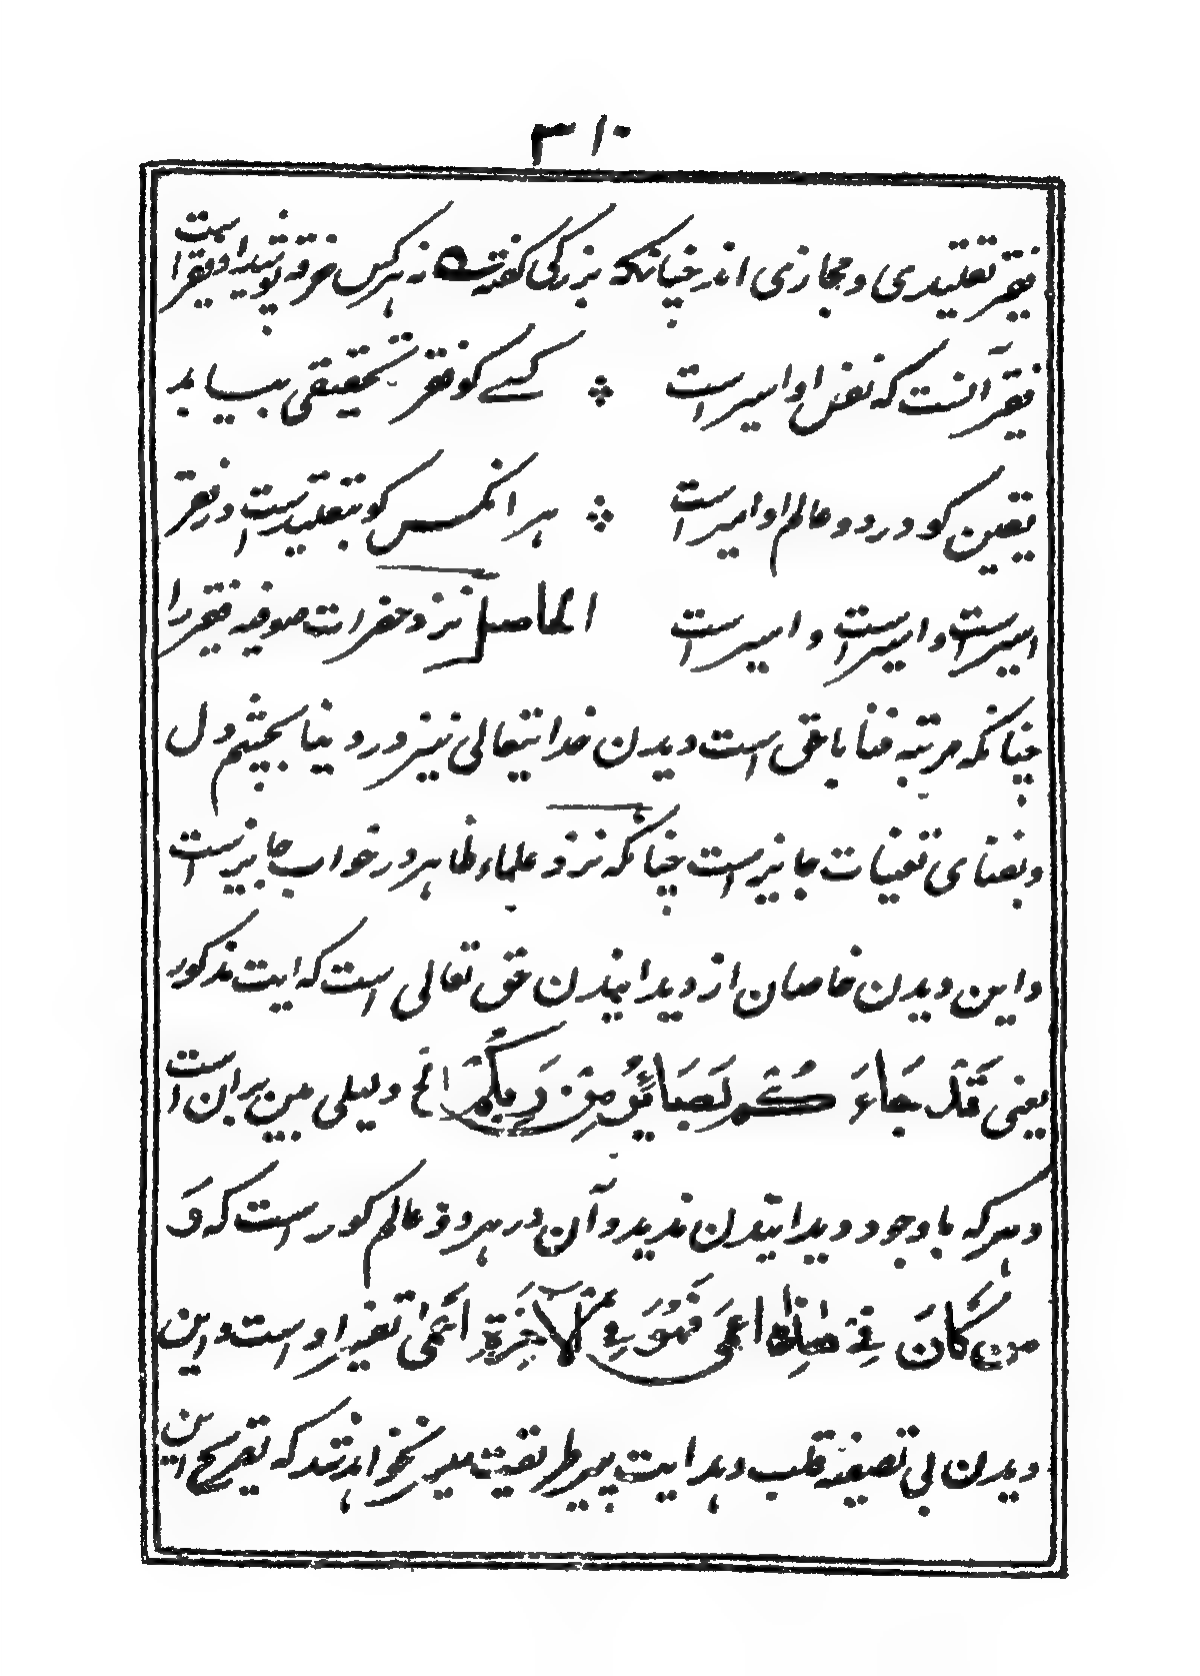 ۳۱۰
فقر تقلیدی و مجازی اند چنانکه بزرگی گفته نه هر کس خرقه پوشید او فقیر است
فقیر آنست که نفس او اسیر است ؞ کسے کو فقر تحقیقی بیابد
یقین کو در دو عالم او امیر است ؞ هر انکس کو بتقلید است در فقر
اسیر است و اسیر است و اسیر است الحاصل نزد حضرات صوفیه فقیر را
چنانکه مرتبه فنا باحق است دیدن خدایتعالی نیز در دنیا بچشم دل
و بفنای تعینات جایز است چنانکه نزد علماء ظاهر در خواب جایز است
و این دیدن خاصان از دیدا نیدن حق تعالی است که ایت مذکور
یعنی قَدْ جَاءَ كُمْ بَصَائِرُ مِنْ رَبِّكُمْ الخ دلیلی مبین بران است
و هر که با وجود دیدانیدن ندید و آن در هر دو عالم کور است که وَ
مَنْ كَانَ فِی هٰذِهٖ اَعْمٰی فَهُوَ فِی الْآخِرَةِ اَعْمٰی تفسیر او است و این
دیدن بی تصفیه قلب و هدایت پیر طریقت میسر نخواهد شد که تصریح این